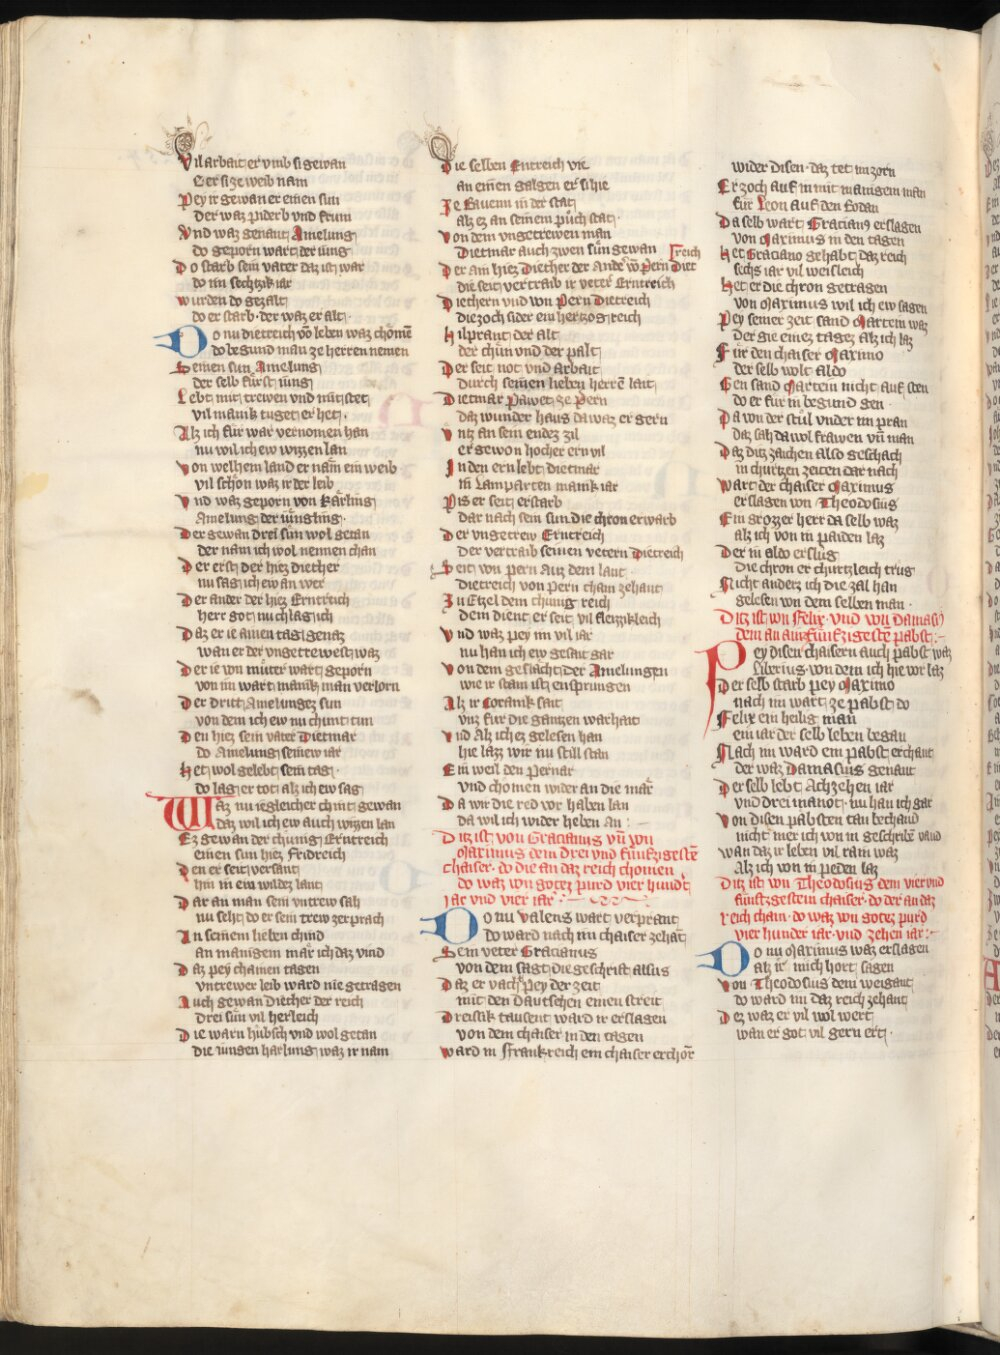 Vil arbait er vmb si gewan
E er si ze weib nam
Pey ir gewan er einen sun
der waz piderb vnd frum
Vnd waz genant Amelung
do geporn wart der iung
Do starb sein vater daz ist war
do im sechtzik iar
wurden do gezalt
do er starb · der waz er alt ·
Do nu dietreich vō leben waz chomē
do begund man ze herren nemen
Seinen sun Amelung
der selb fürst iung
Lebt mit trewen vnd mit stet
vil manik tugent er het ·
Alz ich für war vernomen han
nu wil ich ew wizzen lan
von welhem land er nam ein weib
vil schön waz ir der leib
vnd waz geporn von Karling
Amelung der iüngling ·
Der gewan drei sün wol getan
der nam ich wol nennen chan
Der erst der hiez diecher
nu sag ich ew an wer
Der ander der hiez Erntreich
herr got nu chlag ich
Daz er ie ainen tag genaz
wan er der vngettewest waz
Der ie von müter wart geporn
von im wart manik man verlorn
Der dritt Amelungez sun
von dem ich ew nu chunt tun
Den hiez sein vater Dietmar
do Amelung seinew iar
Het wol gelebt sein tag ·
do lag er tot alz ich ew sag
Waz nu iegleicher chint gewan
daz wil ich ew auch wizzen lan
Ez gewan der chunig Erntreich
einen sun hiez Fridreich
Den er seit versant
hin in ein wildez lant
Dar an man sein vntrew sah
nu seht do er sein trew zerprach
An seinem lieben chind
an manigem mär ich daz vind
Daz pey chainen tagen
vntrewer leib ward nie getragen
Auch gewan diecher der reich
drei sün vil herleich
Die warn hübsch vnd wol getan
die iungen harlung waz ir nam
Die selben Entreich vie
an einen galgen er si hie
Ze Rauenn in der stat
alz ez an seinem püch stat ·
von dem vngetrewen man
Dietmar auch zwen sün gewan
Der ain hiez Diether der Ander vō pern Dietreich
die seit vertraib ir veter Erntreich
Diethern vnd von Pern Dietreich
die zoch sider ein hertzog reich
Hilprant der alt
der chün vnd der palt
Der seit not vnd arbait
durch seinen lieben herrē lait
Dietmar pawet ze pern
daz wunder haus da waz er gern
vntz an sein endez zil
er gewon hocher ern vil
In den ern lebt dietmar
in Lamparten manik iar
Piz er seit erstarb
dar nach sein sun die chron erwarb
Der vngetrew Erntreich
Der vertraib seinen vetern Dietreich
Seit von pern auz dem lant ·
dietreich von pern cham zehant
Zu Etzel dem chunig reich
dem dient er seit vil fleizzikleich
Vnd waz pey im vil iar
nu han ich ew gesait gar
von dem geslächt der Amelungen
wie ir stam ist ensprungen
Alz ir Coranik sait
vnz für die gantzen warhait
Vnd Alz ich ez gelesen han
hie lazz wir nu still stan
Ein weil den pernar
vnd chomen wider an die mär
Da wir die red vor haben lan
da wil ich wider heben An : —
Ditz ist von Gracianus vn̄ von
Maximus dem drei vnd fünfzigestē
chaiser · do die an daz reich chomen
do waz von gotez purd vier hundt
iar vnd vier iar · —
Do nu valens wart verprant
do ward nach im chaiser zehāt
Sein veter Gracianus
von dem sagt die geschrift alsus
Daz er vacht pey der zeit
mit den Dautschen einen streit
Dreisik tausent ward ir erslagen
von dem chaiser in den tagen
ward in Frankreich ein chaiser erchor̄
wider disen · daz tet im zorn
Er zoch auf in mit manigem man
für Leon auf den Rodan
Da selb wart Gracianꝰ erslagen
von Maximus in den tagen
Het Graciano gehabt daz reich
sechs iar vil weisleich
Het er die chron getragen
von Maximus wil ich ew sagen
Pey seiner zeit sand Martein waz
der gie einez tagez alz ich laz
Für den chaiser Maximo
der selb wolt aldo
Gen sand Martein nicht auf sten
do er für in begund gen ·
Da von der stül vnder im pran
daz sah da wol frawen vn̄ man
Daz ditz zaichen also geschach
in churtzen zeiten dar nach
wart der chaiser Maximus
erslagen von Theodosius
Ein grozzer herr da selb waz
alz ich von in paiden laz
Der in aldo erslüg
die chron er churtzleich trüg
Nicht anderz ich die zal han
gelesen von dem selben man ·
Ditz ist von Felix · vnd von damasꝰ
dem an ainz fünfzigestē pabst · —
Pey disen chaisern auch pabst waz
Liberius · von dem ich hie vor laz
Der selb starb pey Maximo
nach im wart ze pabst do
Felix ein heilig man
ein iar der selb leben began
Nach im ward ein pabst erchant
der waz Damasius genant
Der selb lebt Achzehen iar
vnd drei manot · nu han ich gar
Von disen pabsten tan bechand
nicht mer ich von in geschribē vand
wan daz ir leben vil rain waz
Alz ich von in peden laz
Ditz ist von Theodosius dem vier vnd
fünftzgestem chaiser · do der an daz
reich cham · do waz von gotez purd
vier hunder iar · vnd zehen iar : —
Do nu Maximus waz erslagen
alz ir mich hort sagen
Von Theodosius dem weigant
do ward im daz reich zehant
Dez waz er vil wol wert
wan er got vil gern ert ·